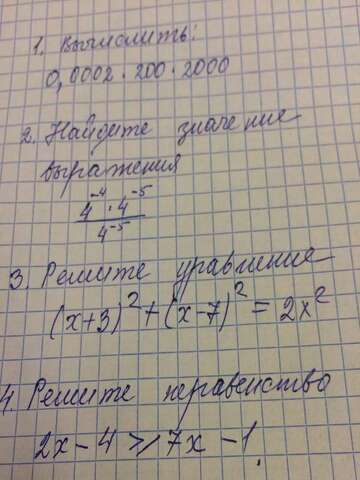 1. Вычислить:
0,0002 · 200 · 2000
2. Найдите значение
выражения
4⁻⁴ · 4⁻⁵
4⁻⁵
3. Решите уравнение
(x+3)² + (x-7)² = 2x²
4. Решите неравенство
2x - 4 ⩾ 7x - 1.